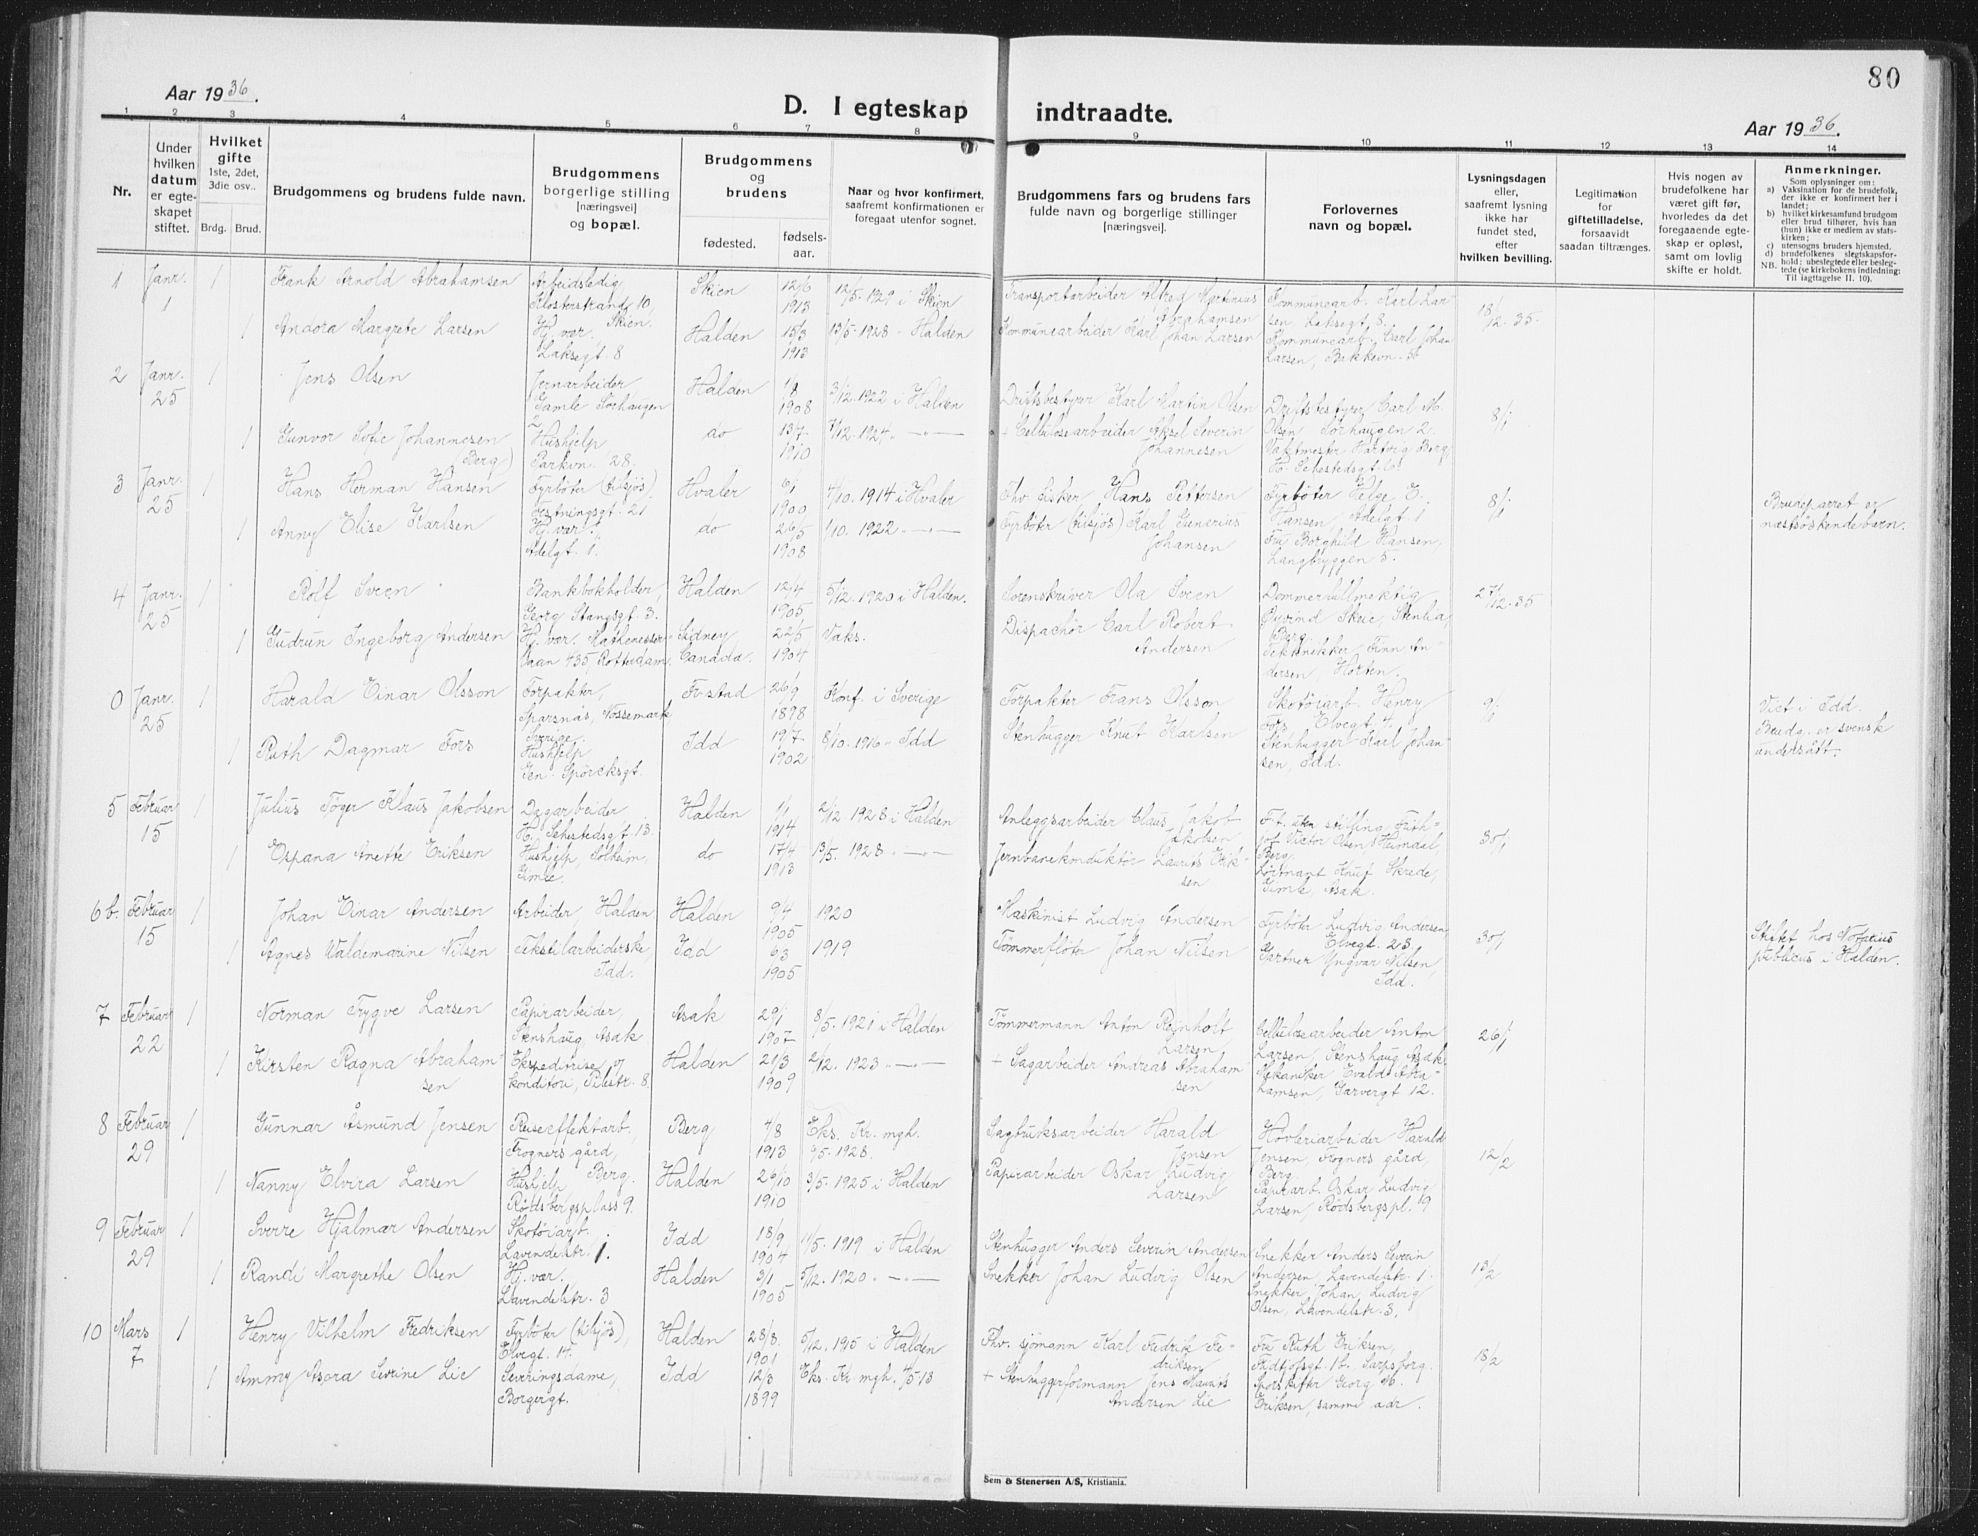 80
Aar 1936.
D. I egteskap indtraadte.
Aar 1936.
1 2 3 4 5 6 7 8 9 10 11 12 13 14
Nr.
Under hvilken datum er egteskapet stiftet.
Hvilket gifte 1ste, 2det, 3die osv..
Brdg. Brud.
Brudgommens og brudens fulde navn.
Brudgommens borgerlige stilling [næringsvei] og bopæl.
Brudgommens og brudens
fødested. fødselsaar.
Naar og hvor konfirmert, saafremt konfirmationen er foregaat utenfor sognet.
Brudgommens fars og brudens fars fulde navn og borgerlige stillinger [næringsvei].
Forlovernes navn og bopæl.
Lysningsdagen eller, saafremt lysning ikke har fundet sted, efter hvilken bevilling.
Legitimation for giftetilladelse, forsaavidt saadan tiltrænges.
Hvis nogen av brudefolkene har været gift før, hvorledes da det foregaaende egteskap er opløst, samt om lovlig skifte er holdt.
Anmerkninger.
Som oplysninger om:
a) Vaksination for de brudefolk, der ikke er konfirmert her i landet;
b) hvilket kirkesamfund brudgom eller brud tilhører, hvis han (hun) ikke er medlem av statskirken;
c) utensogns bruders hjemsted.
d) brudefolkenes slegtskapsforhold: ubeslegtede eller beslegtede (se kirkebokens indledning:
NB. Til iagttagelse II. 10).
1 Janr. 1 1 Frank Arnold Abrahamsen Arbeidsledig, Klosterstrand 10, Skien. Skien 12/6 1913 12/5 - 1929 i Skien Transportarbeider Alfred Martinius Abrahamsen Kommunearb. Karl Larsen, Laksegt 8. 18/12-35.
1 Andora Margrete Larsen Hj. vær. Laksegt. 8 Halden 15/3 1913 13/5-1928 - Halden Kommunearbeider Karl Johan Larsen Kommunearb. Carl Johan Larsen, Bakkevn.
2 Janr. 25 1 Jens Olsen Jernarbeider Gamle Sørhaugen 2 Halden 1/8 1908 3/12-1922 i Halden Driftsbestyrer Karl Martin Olsen Driftsbestyrer Carl M. Olsen Sørhaugen 2. 8/1
1 Gunvor Sofie Johannesen (Berg) Hushjelp Parkvn. 28. do 13/7 1910 7/12-1924 + Cellulosearbeider Aksel Severin Johannesen Vaktmester Hartvig Berg, H. Sehestedsgt.
3 Janr. 25 1 Hans Herman Hansen Fyrbøter (tilsjøs) Festningsgt. 21 Hvaler 6/1 1900 4/10. 1914 i Hvaler Fhv. fisker Hans Pettersen Fyrbøter Helge E. Hansen, Adelgt 1 8/1 Brudeparret er næstsøskendebarn.
1 Anny Elise Karlsen Hj. vær. Adelgt. 1. do 26/5 1908 1/10. 1922 Fyrbøter (tilsjøs) Karl Gunerius Johansen Fru Borghild Hansen, Langbryggen 5.
4 Janr. 25 1 Rolf Sveen Bankbokholder, Georg Stangsgt. 3. Halden 12/4 1905 5/12. 1920 i Halden. Sorenskriver Ola Sveen Dommerfullmektig Øyvind Skeie, Stenlia, Berg 27/12-35
1 Gudrun Ingeborg Andersen Hj. vær. Mathenesserlaan 435 Rotterdam. Sidney Canada. 22/5 1904 Vaks. Dispachør Carl Robert Andersen Finn Andersen, Horten.
0 Janr. 25 1 Harald Einar Olsson Forpakter, Sparsnäs, Nössemark Sverige. 26/9 1898 Konf. i Sverige Forpakter Frans Olsson Skotøiarb. Henry Fors Elvegt 4. 9/1 Viet i Idd. Brudg. er svensk undersått.
1 Ruth Dagmar Fors Hushjelp Gen. Spörcksgt. Idd 19/7 1902 8/10. 1916 - Idd Stenhugger Knut Karlsen Stenhugger Karl Johansen, Idd.
5 Februar 15 1 Julius Tøger Klaus Jakobsen Dagarbeider, H. Sehestedsgt. 13. Halden 1/1 1914 2/12. 1928 i Halden Anleggsarbeider Claus Jakob Jakobsen Victor Olsen, Heimdal Berg. 30/1
1 Ospana Anette Eriksen Hushjelp, Solheim, Gimle. do 17/4 1913 13/5. 1928 Jernbanekonduktør Laurits Eriksen Løitnant Knut Skrede, Gimle, Asak.
6 b. Februar 15 1 Johan Einar Andersen Arbeider, Halden Halden 9/4 1905 1920 Maskinist Ludvig Andersen Fyrbøter Ludvig Andersen, Elvegt. 23. 30/1 Stiftet hos Notarius publicus i Halden.
1 Agnes Valdemarine Nilsen Tekstilarbeiderske, Idd. Idd 6/3 1905 1919 Tømmerfløter Johan Nilsen Gartner Yngvar Nilsen, Idd.
7 Februar 22 1 Norman Trygve Larsen Papirarbeider, Stenshaug, Asak Asak 29/1 8/5. 1921 i Halden Tømmermann Anton Reinholt Larsen Cellulosearbeider Anton Larsen, Stenshaug Asak. 26/1
1 Kirsten Ragna Abrahamsen Ekspeditrise v/ konditori, Pilestr. 8. Halden 21/3 1909 2/12. 1923 + Sagarbeider Andreas Abrahamsen Mekaniker Evald Abrahamsen, Garvergt 12.
8 Februar 29 1 Gunnar Åsmund Jensen Reiseeffektarb. Frogners gård, Berg. Berg 4/8 1913 Eks. Kr. mgh. 6/5-1928. Sagbruksarbeider Harald Jensen Høvleriarbeider Harald Jensen, Frogners gård, Berg. 12/2
1 Nanny Elvira Larsen Hushjelp Rødsbergsplass 9. Halden 26/10 1910 3/5. 1925 i Halden Papirarbeider Oskar Ludvig Larsen Papirarb. Oskar Ludvig Larsen, Rødsbergspl. 19
9 Februar 29 1 Sverre Hjalmar Andersen Skotøiarb. Lavendelstr. 1. Idd 18/9 1904 11/5. 1919 i Halden Stenhugger Anders Severin Andersen Snekker Anders Severin Andersen, Lavendelstr. 1. 13/2
1 Randi Margrethe Olsen Hj. vær. Lavendelstr. 3 Halden 3/1 1905 5/12. 1920 Snekker Johan Ludvig Olsen Snekker Johan Ludvig Olsen, Lavendelstr. 3.
10 Mars 7 1 Henry Vilhelm Fredriksen Fyrbøter (tilsjøs), Elvegt. 14. Halden 28/8. 1901 5/12. 1915 i Halden Fhv. sjømann Karl Fredrik Fredriksen Fru Ruth Eriksen, Fridtjofsgt 1b. Sarpsborg. 18/2
1 Ammy Asora Sevrine Lie Serveringsdame, Borgergt. Idd 12/3 1899 Eks. Kr. mgh. 4/5-13 + Stenhuggerformann Jens Mauritz Andersen Lie Sporskifter Georg M. Eriksen, samme adr.
Sem & Stenersen A/S, Kristiania.